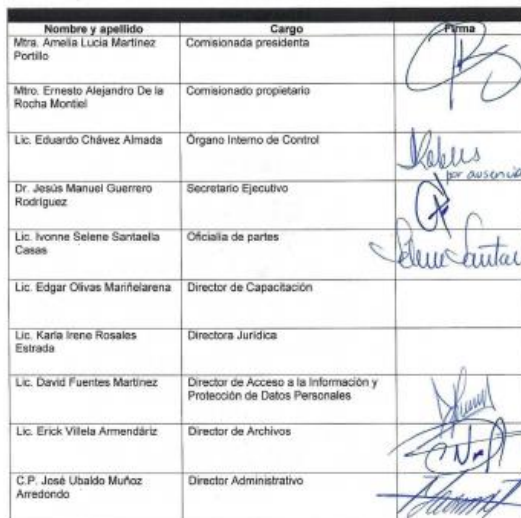 Nombre y apellido Cargo Firma
Mtra. Amelia Lucia Martínez Comisionada presidenta
Portillo
Mtro. Ernesto Alejandro De la Comisionado propietario
Rocha Montiel
Lic. Eduardo Chávez Almada Órgano Interno de Control
por ausencia
Dr. Jesús Manuel Guerrero Secretario Ejecutivo
Rodríguez
Lic. Ivonne Selene Santaella Oficialia de partes
Casas
Lic. Edgar Olivas Mariñelarena Director de Capacitación
Lic. Karla Irene Rosales Directora Jurídica
Estrada
Lic. David Fuentes Martínez Director de Acceso a la Información y
Protección de Datos Personales
Lic. Erick Villela Armendáriz Director de Archivos
C.P. José Ubaldo Muñoz Director Administrativo
Arredondo